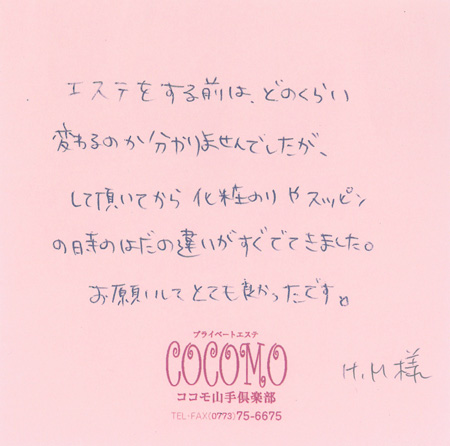 エステをする前は、どのくらい
変わるのか分かりませんでしたが、
して頂いてから化粧のりやスッピン
の時のはだの違いがすぐでてきました。
お願いしてとても良かったです。
プライベートエステ
COCOMO
ココモ山手倶楽部
TEL・FAX(0773)75-6675
H.M様